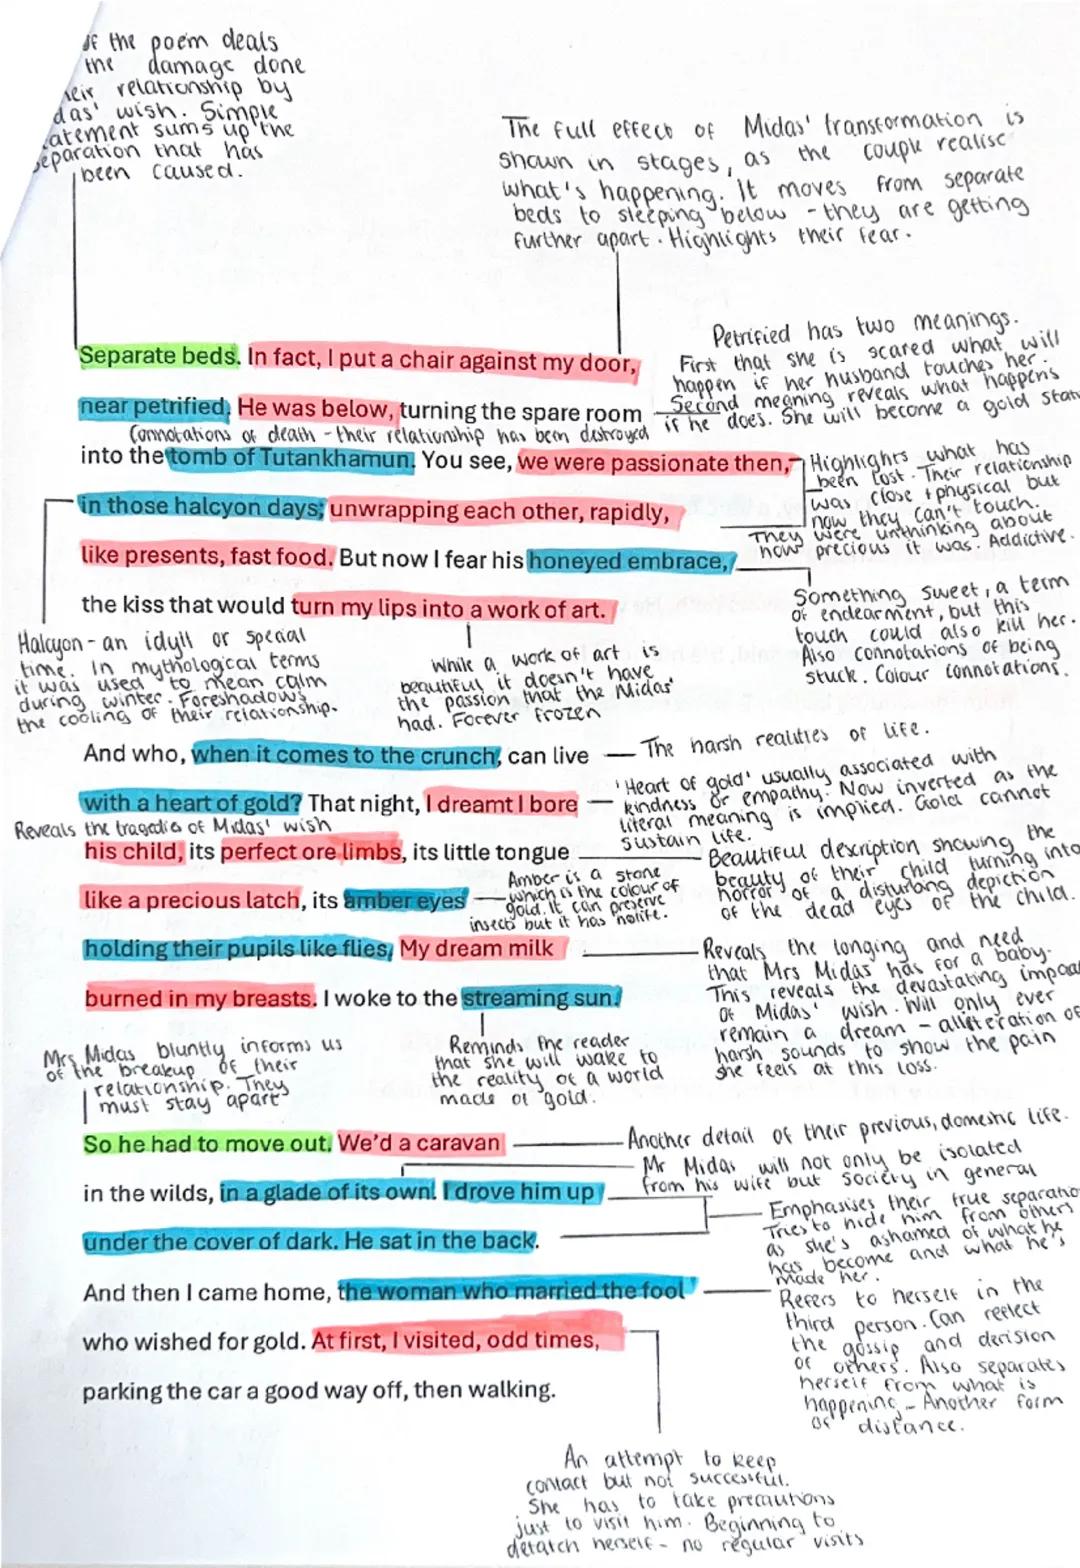 of the poem deals
the damage done
their relationship by
das' wish. Simple
atement sums up the
separation that has
been caused.
The full effect of Midas' transformation is
shown in stages, as the couple realise
what's happening. It moves from separate
beds to sleeping below - they are getting
further apart. Highlights their fear.
Petrified has two meanings.
First that she is scared what will
happen if her husband touches her.
Second meaning reveals what happens
if he does. She will become a gold stat
Separate beds. In fact, I put a chair against my door,
near petrified. He was below, turning the spare room
Connotations of death - their relationship has been destroyed
into the tomb of Tutankhamun. You see, we were passionate then,
in those halcyon days; unwrapping each other, rapidly,
like presents, fast food. But now I fear his honeyed embrace,
the kiss that would turn my lips into a work of art.
Highlights what has
been lost. Their relationship
was close + physical but
now they can't touch.
They were unthinking about
how precious it was. Addictive.
Something sweet, a term
of endearment, but this
touch could also kill her.
Also connotations of being
stuck. Colour connotations.
Halcyon - an idyll or special
time. In mythological terms
it was used to mean calm
during winter. Foreshadows
the cooling of their relationship.
While a work of art is
beautiful it doesn't have
the passion that the Midas'
had. Forever frozen
And who, when it comes to the crunch, can live
The harsh realities of life.
with a heart of gold? That night, I dreamt I bore
'Heart of gold' usually associated with
kindness or empathy. Now inverted as the
literal meaning is implied. Gold cannot
sustain life.
Reveals the tragedies of Midas' wish
his child, its perfect ore limbs, its little tongue
like a precious latch, its amber eyes
Amber is a stone
which is the colour of
gold. It can preserve
insects but it has no life.
Beautiful description showing the
beauty of their child turning into
horror of a disturbing depiction
of the dead eyes of the child.
holding their pupils like flies. My dream milk
burned in my breasts. I woke to the streaming sun.
Reveals the longing and need
that Mrs Midas has for a baby.
This reveals the devastating impact
of Midas' wish. Will only ever
remain a dream - alliteration of
harsh sounds to show the pain
she feels at this loss.
Reminds the reader
that she will wake to
the reality of a world
made of gold.
Mrs Midas bluntly informs us
of the breakup of their
relationship. They
must stay apart
So he had to move out. We'd a caravan
Another detail of their previous, domestic life.
in the wilds, in a glade of its own. I drove him up
Mr Midas will not only be isolated
from his wife but society in general
under the cover of dark. He sat in the back.
Emphasises their true separatio
Tries to hide him from others
as she's ashamed of what he
has become and what he's
made her.
And then I came home, the woman who married the fool
who wished for gold. At first, I visited, odd times,
parking the car a good way off, then walking.
Refers to herself in the
third person. Can reflect
the gossip and derision
of others. Also separates
herself from what is
happening - Another form
of distance.
An attempt to keep
contact but not successful.
She has to take precautions
just to visit him. Beginning to
detatch herself - no regular visits